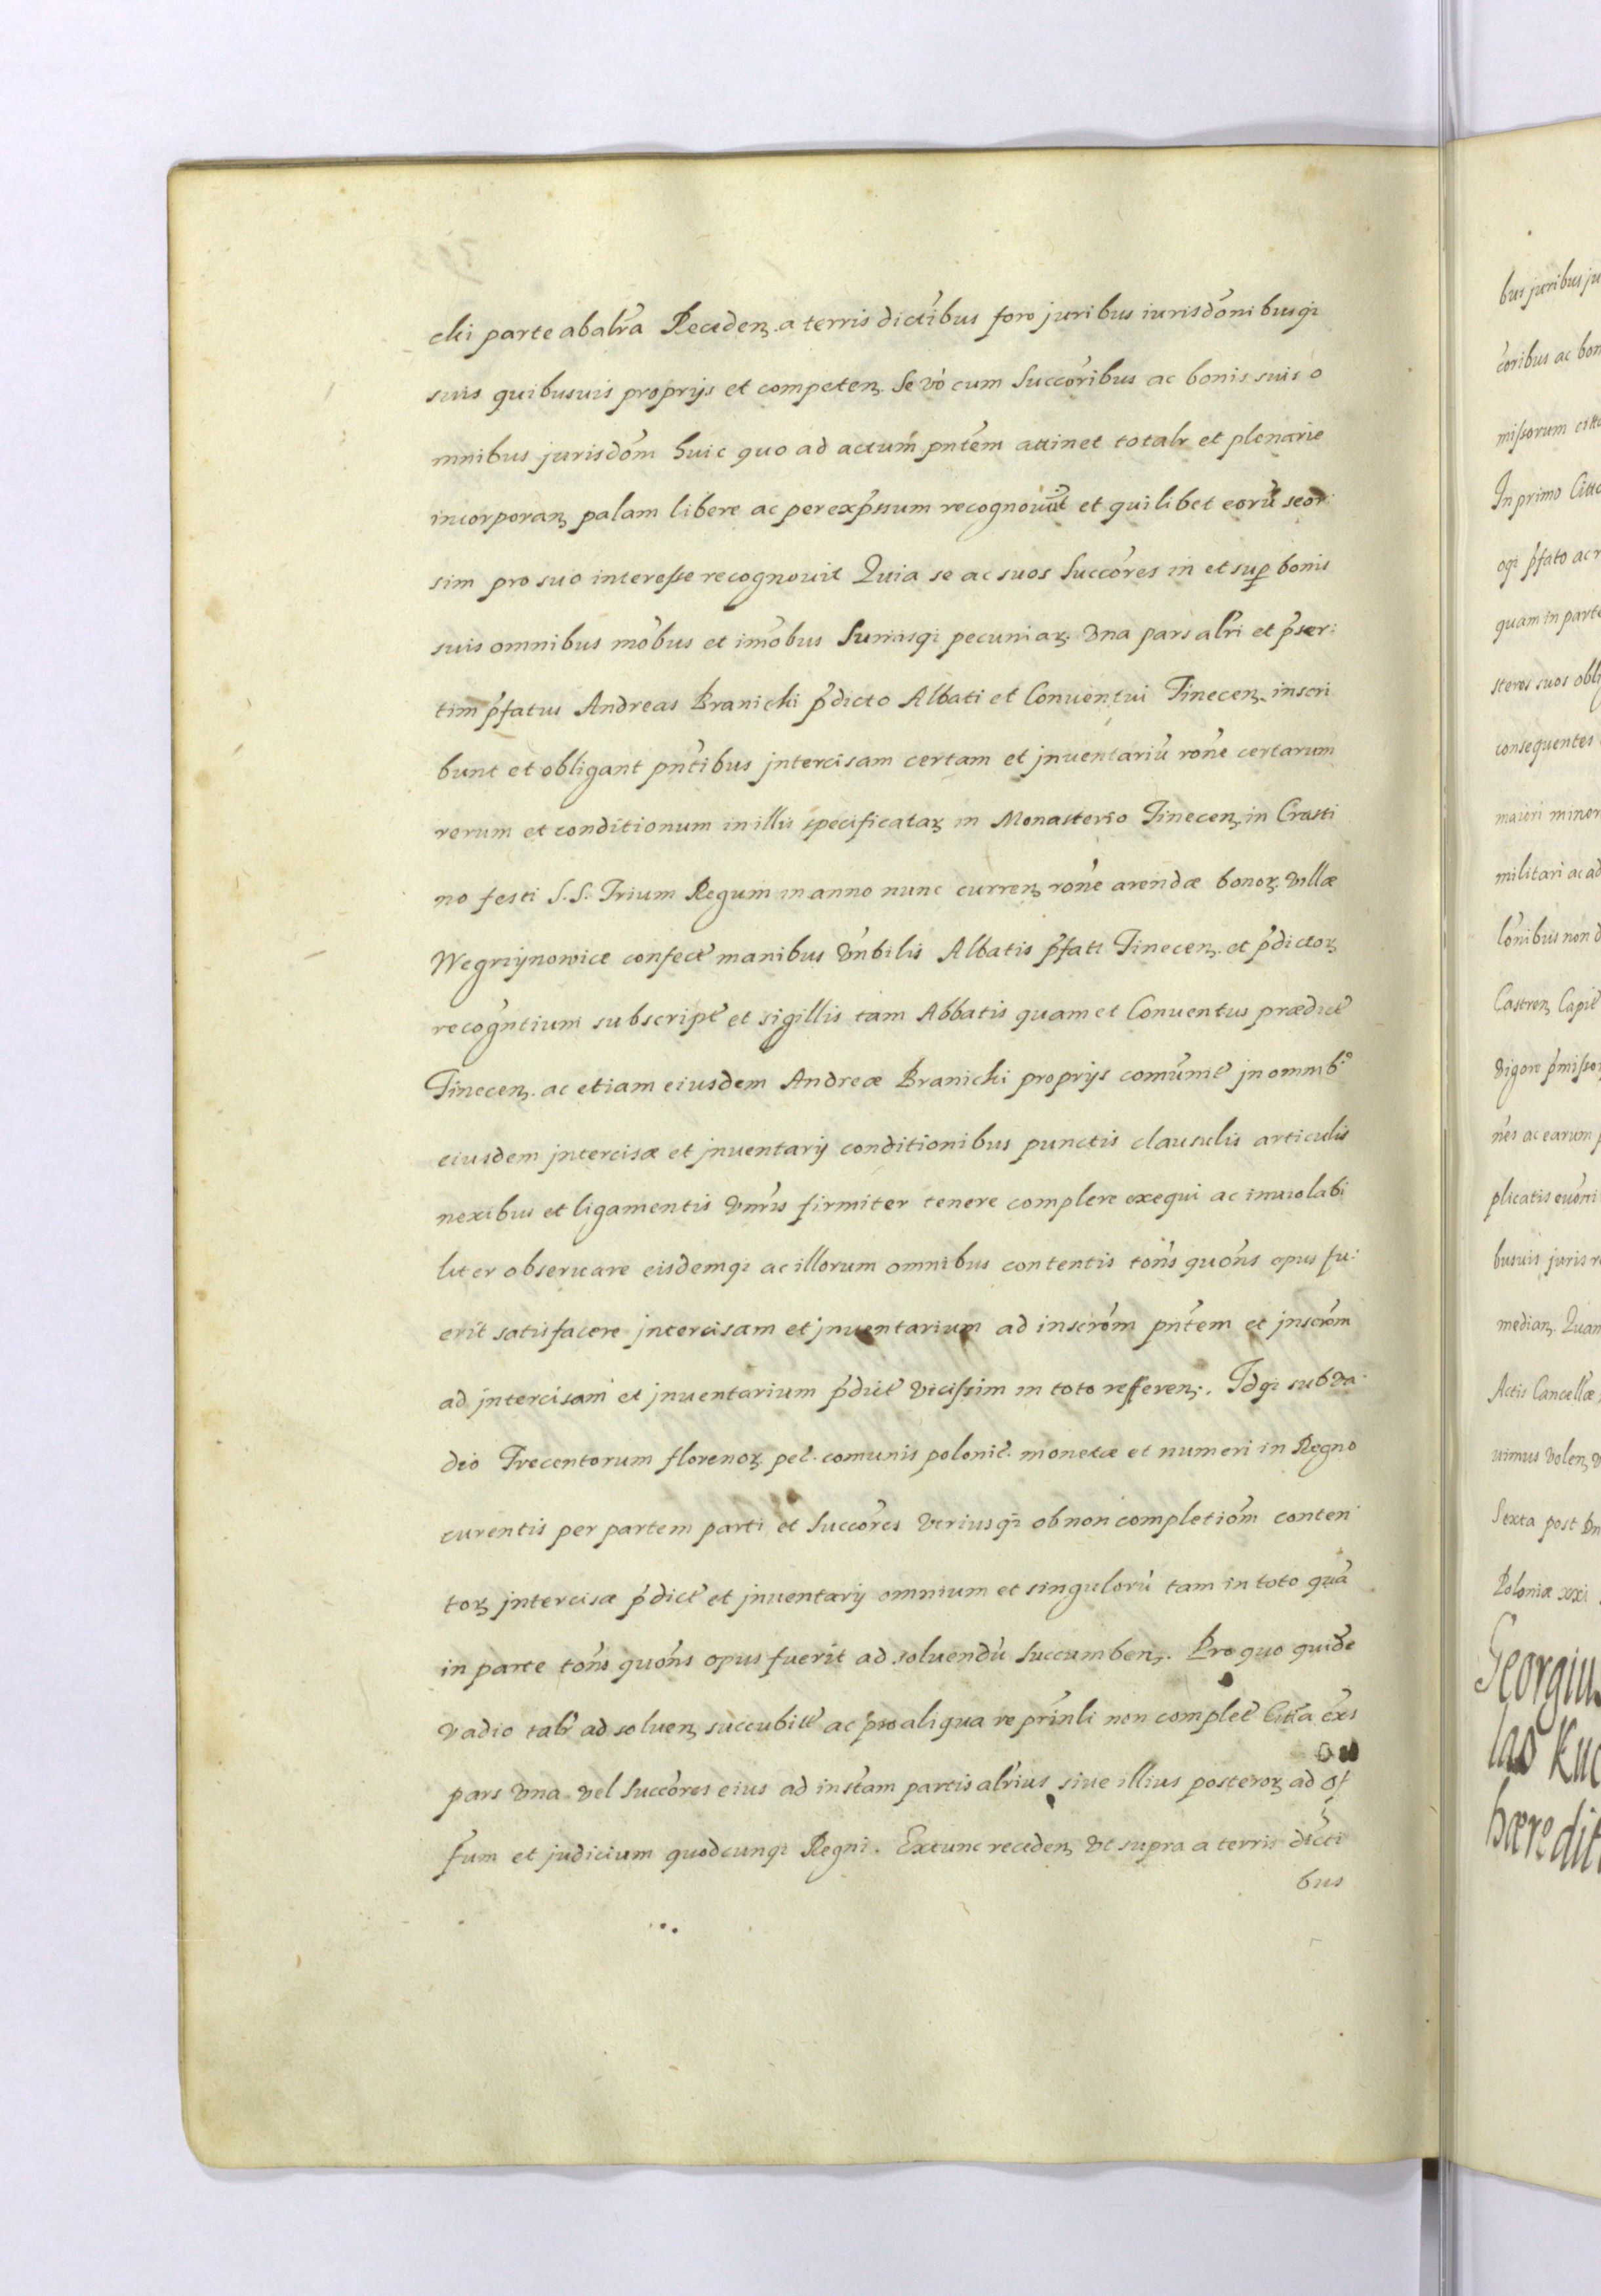 cki parte ab altra Receden. a terris dictibus foro juribus iurisdonibusqi
suis quibusuis proprijs et competen. Se vo cum Succoribus ac bonis suis o
mnibus jurisdom huic quo ad actum pntem attinet totalr et plenarie
incorporan palam libere ac per expssum recognouut et quilibet eoru seor
sim pro suo interesse recognouit Quia se ac suos Succores in et sup bonis
suis omnibus mobus et imobus Sumisqi pecuniar. Vna pars altri et pser:
tim pfatus Andreas Branicki pdicto Abbati et Conuentui Tinecen. inscri
bunt et obligant pntibus jntercisam certam et jnuentariu rone certarum
rerum et conditionum in illis specificatar in Monasterio Tinecen. in Crasti
no festi S.S. Trium Regum in anno nunc curren rone arendæ bonor. villæ
Wegrzynowice confect manibus Vnbilis Abbatis pfati Tinecen. et pdictor
recogntium subscript et sigillis tam Abbatis quam et Conuentus prædict
Tinecen. ac etiam eiusdem Andreæ Branicki proprijs comunit jn omnib9
eiusdem jntercisæ et jnuentarij conditionibus punctis clausulis articulis
nexibus et ligamentis vnirs firmiter tenere complere exequi ac inuiolabi
liter obseruare eisdemqi ac illorum omnibus contentis tons quons opus fu:
erit satisfacere jntercisam et jnuentarium ad inscrom pntem et jnscrom
ad jntercisam et jnuentarium pdict vicissim in toto refferen. Idqi sub va
dio Trecentorum florenor. pec. comunis polonic. monetæ et numeri in Regno
curentis per partem parti et Succores vtriusqi ob non completiom conten
tor jntercisæ pdict et jnuentarij omnium et singuloru tam in toto qua
in parte tons quons opus fuerit ad soluendu succumben. Pro quo quide
vadio talr ad soluen succubitt ac pro aliqua re prinli non complet Citta exs
pars vna vel Succores eius ad instam partis altrius siue illius posteror ad of
fum et judicium quodcunqi Regni. Extunc receden vt supra a terris dicti
bus
bus juribus ju
coribus ac bon
missorum citt
In primo Citt
oqi pfato ac r
quam in parte
steros suos obl
consequentes
maiori minor
militari ac ad
lonibus non d
Castren Capit
vigore pmissor
nes ac earum p
plicatis euoni
busuis juris r
median. Quam
Actis Cancellæ
uimus volen v
Sexta post Dn
Poloniæ xxi
Georgius
las Kuc
hæredit